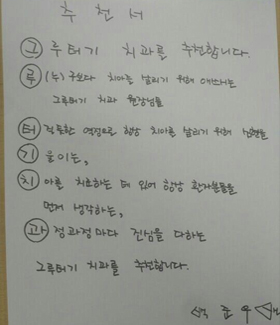 추천서
그루터기 치과를 추천합니다.
루(누)구보다 치아를 살리기 위해 애쓰시는
그루터기 치과 원장님을
터득한 열정으로 항상 치아를 살리기 위해
기울이는,
치아를 치료하는 데 있어 항상 환자분들을
먼저 생각하는,
과정과정마다 진심을 다하는
그루터기 치과를 추천합니다.
준우